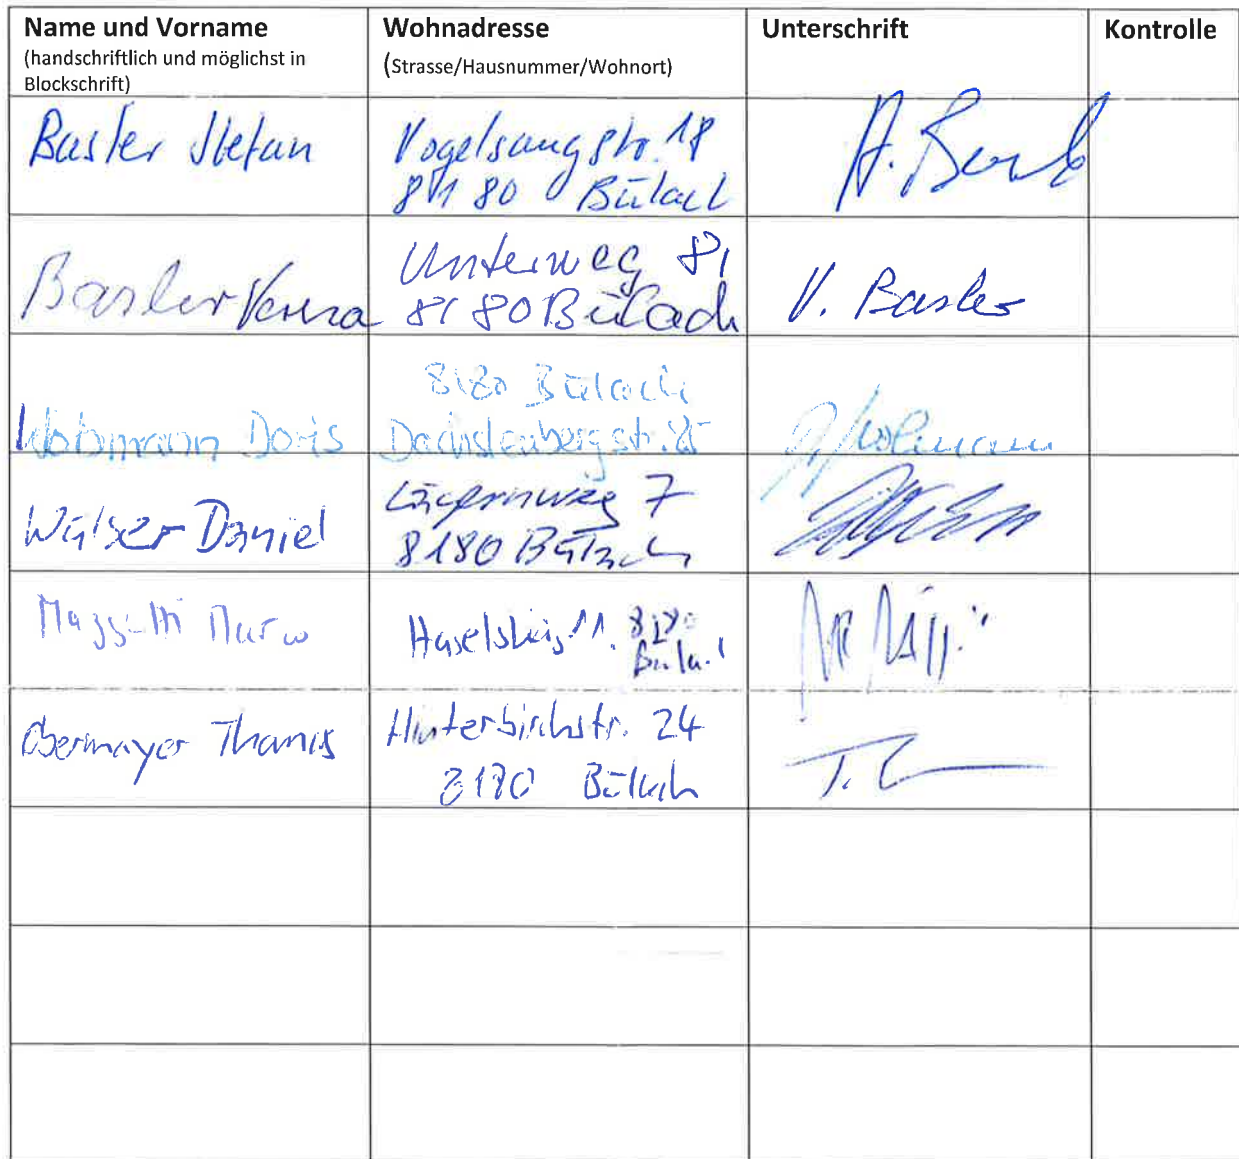 Name und Vorname
(handschriftlich und möglichst in
Blockschrift)
Wohnadresse
(Strasse/Hausnummer/Wohnort)
Unterschrift
Kontrolle
Basler Stefan
Vogelsangstr. 18
8180 Bülach
Basler Verena
Unterweg 81
8180 Bülach
V. Basler
Wobmann Doris
8180 Bülach
Dachslenbergstr.
Walser Daniel
Lägernweg 7
8180 Bülach
Marco
11. 8180
Bülach
Obermayer Thomas
Hinterbirchstr. 24
8180 Bülach